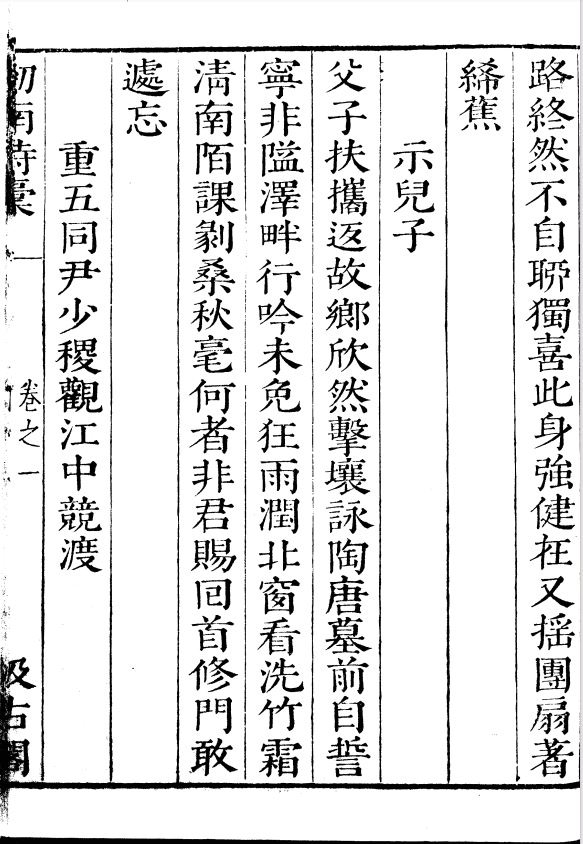 路終然不自聊獨喜此身強健在又揺團扇著
絺蕉
示兒子
父子扶攜返故鄉欣然擊壤詠陶唐墓前自誓
寧非隘澤畔行吟未免狂雨潤北窗看洗竹霜
清南陌課剝桑秋毫何者非君賜囘首修門敢
遽忘
重五同尹少稷觀江中競渡
劒南詩稾
卷之一
汲古閣